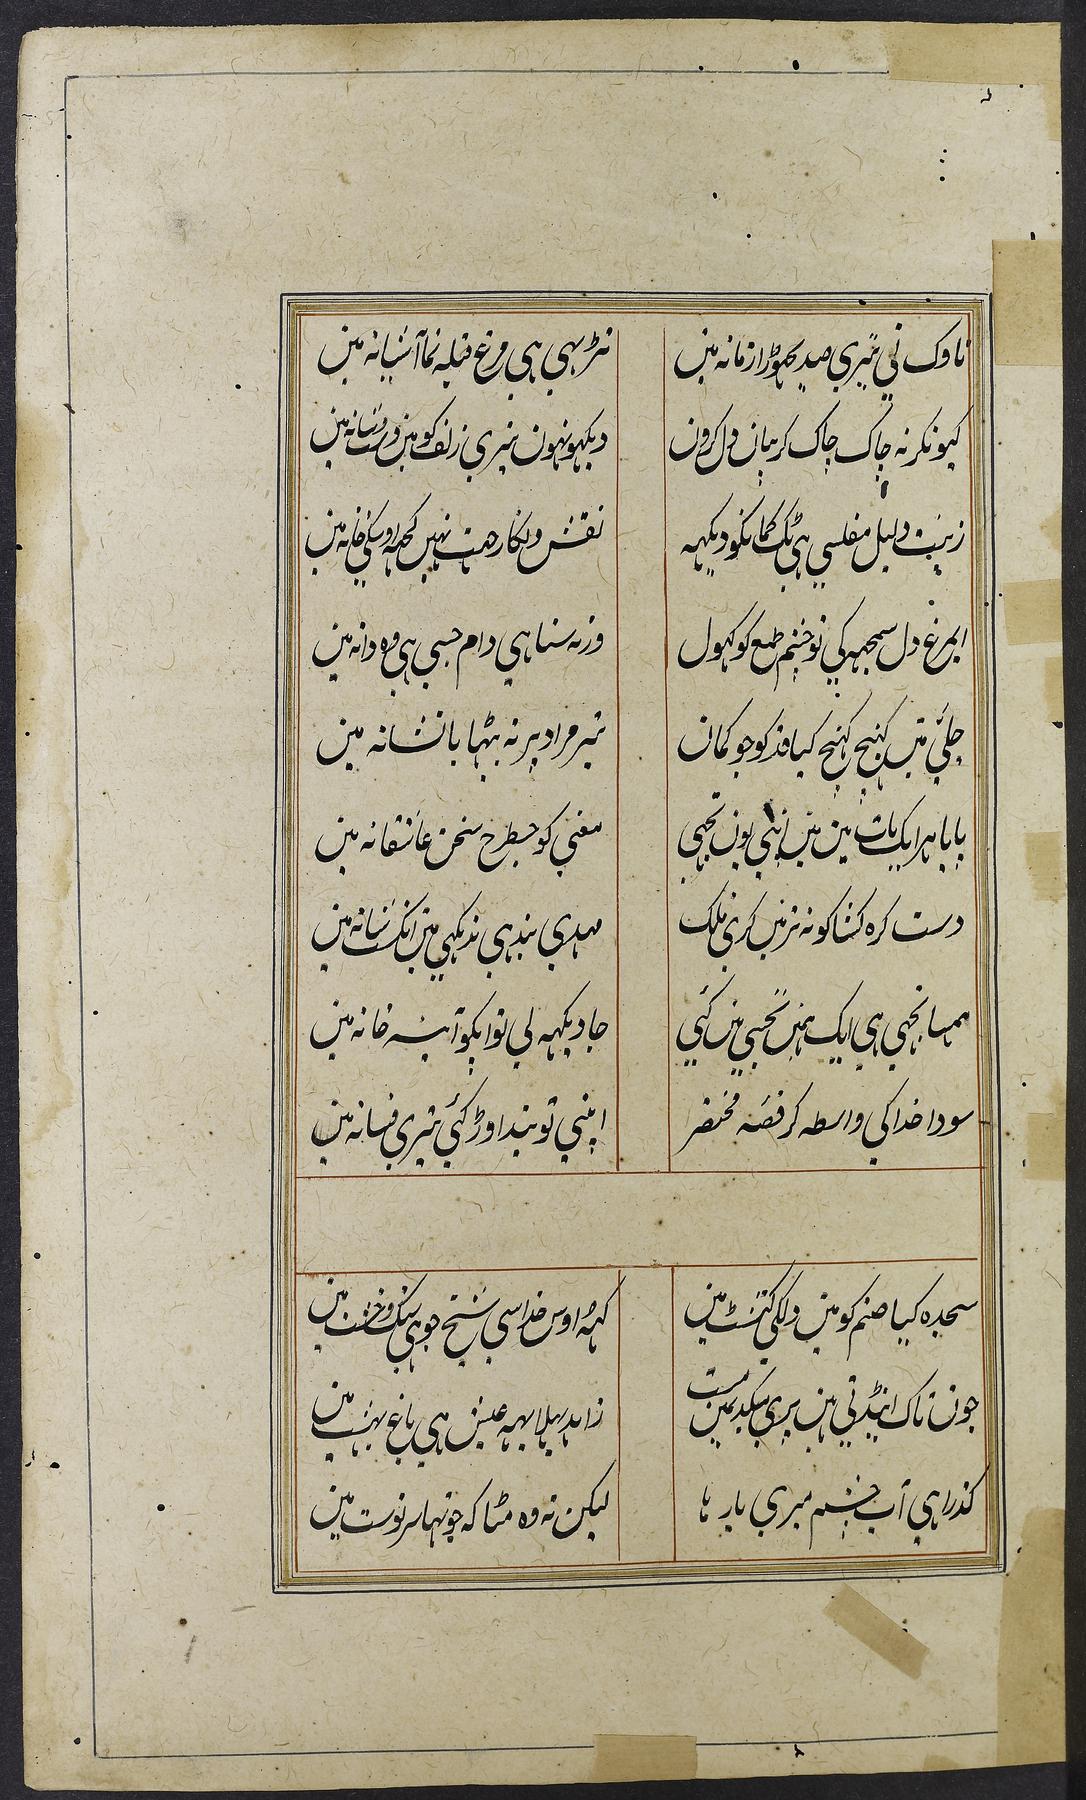 ناوک نی تیری صید نچھوڑا زمانہ مین
تڑپہی ہی مرغ قبلہ نما آشیانہ مین
کیونکر نہ چاک چاک گریبان دل کرون
دیکہو نہون تیری زلف کو مین دست شانہ مین
زینت دلیل مفلسی ہی ٹک کمانکو دیکہہ
نقش و نگار جہت نہین کچہہ اوسکی خانہ مین
ایمرغ دل سمجہہ کی تو چشم طمع کو کہول
ورنہ سنا ہی دام جسی ہی وہ دانہ مین
چلّی مین کہنیچ کہنیچ کیا قد کو جو کمان
تیر مراد پر نہ بٹہایا نشانہ مین
پایا ہر ایک بات مین مین اپنی یون تجہی
معنی کو جسطرح سخن عاشقانہ مین
دست گرہ کشا کو نہ تزئین کری فلک
مہدی بندہی ندیکہی مین انگشت شانہ مین
ہمسا تجہی ہی ایک ہمین تجہسی ہین کئی
جا دیکہہ لی تو اپکو آئینہ خانہ مین
سودا خدا کی واسطہ کر قصّہ مختصر
اپنی تو نیند اوڑ گئی تیری فسانہ مین
سجدہ کیا صنم کو مین دلکی کنشت مین
کہہ اوس خدا سی شیخ جو ہی سنگ و خشت مین
جون تاک اینڈتی ہین پڑی میکدیمین مست
زاہد بہلا یہہ عیش ہی باغ بہشت مین
گذرا ہی آب چشم میری بار ہا
لیکن نہ وہ مٹا کہ جو تہا سرنوشت مین